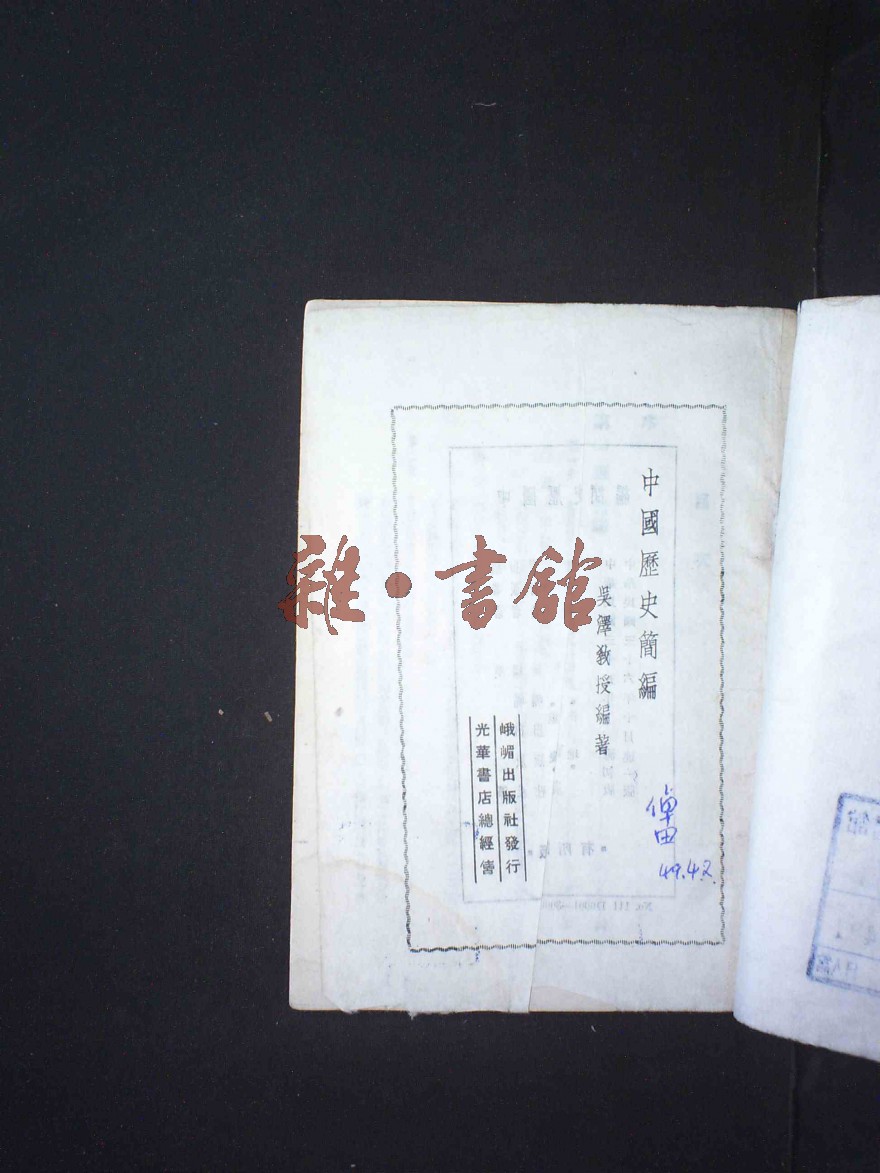 中國歷史簡編
吳澤教授編著
峨嵋出版社發行
光華書店總經售
49.4.2.
雜·書館